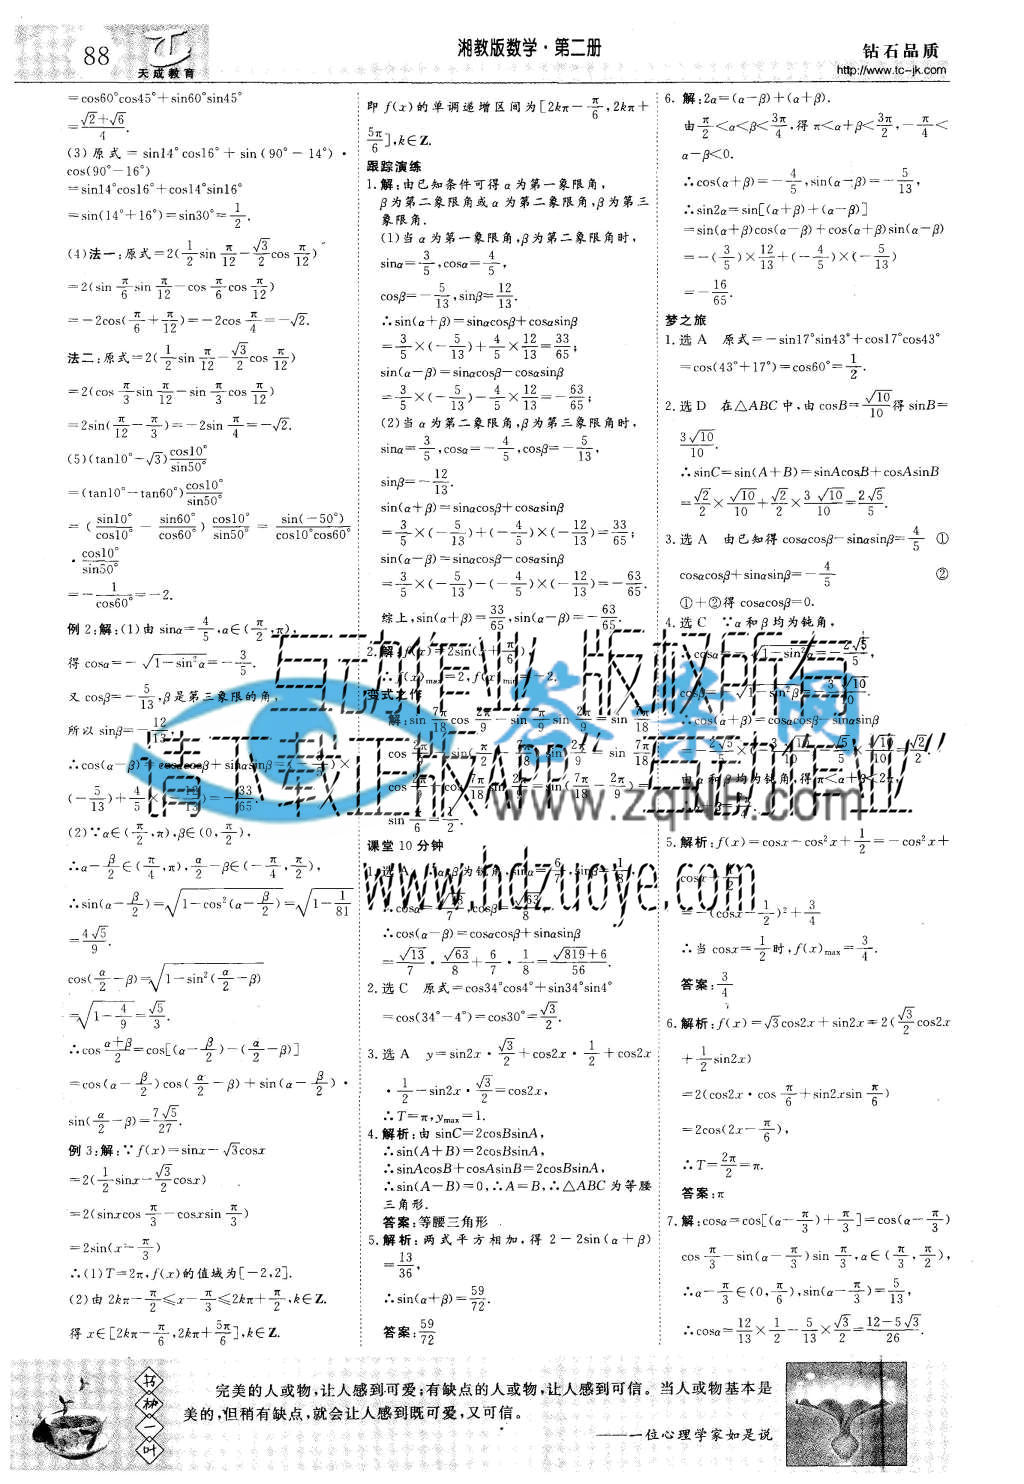 88
天成教育
湘教版数学·第二册
钻石品质
http://www.tc-jk.com
=cos60°cos45°+sin60°sin45°
=(√2+√6)/4.
(3)原式=sin14°cos16°+sin(90°-14°)·
cos(90°-16°)
=sin14°cos16°+cos14°sin16°
=sin(14°+16°)=sin30°=1/2.
(4)法一:原式=2(1/2 sin π/12-√3/2 cos π/12)
=2(sin π/6 sin π/12-cos π/6 cos π/12)
=-2cos(π/6+π/12)=-2cos π/4=-√2.
法二:原式=2(1/2 sin π/12-√3/2 cos π/12)
=2(cos π/3 sin π/12-sin π/3 cos π/12)
=2sin(π/12-π/3)=-2sin π/4=-√2.
(5)(tan10°-√3) cos10°/sin50°
=(tan10°-tan60°) cos10°/sin50°
=(sin10°/cos10° - sin60°/cos60°) cos10°/sin50° = sin(-50°)/cos10°cos60°
· cos10°/sin50°
=-1/cos60°=-2.
例2:解:(1)由 sinα=4/5,α∈(π/2,π),
得 cosα=-√1-sin²α=-3/5.
又 cosβ=-5/13,β是第三象限的角,
所以 sinβ=-12/13.
∴cos(α-β)=cosαcosβ+sinαsinβ=(-3/5)×
(-5/13)+4/5×(-12/13)=-33/65.
(2)∵α∈(π/2,π),β∈(0,π/2),
∴α-β/2∈(π/4,π),α/2-β∈(-π/4,π/2),
∴sin(α-β/2)=√1-cos²(α-β/2)=√1-1/81
=4√5/9.
cos(α/2-β)=√1-sin²(α/2-β)
=√1-4/9=√5/3.
∴cos (α+β)/2=cos[(α-β/2)-(α/2-β)]
=cos(α-β/2)cos(α/2-β)+sin(α-β/2)·
sin(α/2-β)=7√5/27.
例3:解:∵f(x)=sinx-√3cosx
=2(1/2 sinx-√3/2 cosx)
=2(sinxcos π/3-cosxsin π/3)
=2sin(x-π/3)
∴(1)T=2π,f(x)的值域为[-2,2].
(2)由 2kπ-π/2≤x-π/3≤2kπ+π/2,k∈Z.
得 x∈[2kπ-π/6,2kπ+5π/6],k∈Z.
即 f(x)的单调递增区间为[2kπ-π/6,2kπ+
5π/6],k∈Z.
跟踪演练
1.解:由已知条件可得α为第一象限角,
β为第二象限角或α为第二象限角,β为第三
象限角.
(1)当α为第一象限角,β为第二象限角时,
sinα=3/5,cosα=4/5,
cosβ=-5/13,sinβ=12/13.
∴sin(α+β)=sinαcosβ+cosαsinβ
=3/5×(-5/13)+4/5×12/13=33/65;
sin(α-β)=sinαcosβ-cosαsinβ
=3/5×(-5/13)-4/5×12/13=-63/65;
(2)当α为第二象限角,β为第三象限角时,
sinα=3/5,cosα=-4/5,cosβ=-5/13,
sinβ=-12/13.
sin(α+β)=sinαcosβ+cosαsinβ
=3/5×(-5/13)+(-4/5)×(-12/13)=33/65;
sin(α-β)=sinαcosβ-cosαsinβ
=3/5×(-5/13)-(-4/5)×(-12/13)=-63/65.
综上,sin(α+β)=33/65,sin(α-β)=-63/65.
2.解:f(x)=2sin(x+π/6),
∴f(x)max=2,f(x)min=-2.
变式之作
解:sin 7π/18 cos 2π/9-sin π/9 sin 2π/9=sin 7π/18
课堂10分钟
∴cos(α-β)=cosαcosβ+sinαsinβ
=√13/7·√63/8+6/7·1/8=(√819+6)/56
2.选C 原式=cos34°cos4°+sin34°sin4°
=cos(34°-4°)=cos30°=√3/2.
3.选A y=sin2x·√3/2+cos2x·1/2+cos2x
·1/2-sin2x·√3/2=cos2x,
∴T=π,ymax=1.
4.解析:由 sinC=2cosBsinA,
∴sin(A+B)=2cosBsinA,
∴sinAcosB+cosAsinB=2cosBsinA,
∴sin(A-B)=0,∴A=B,∴△ABC为等腰
三角形.
答案:等腰三角形
5.解析:两式平方相加,得 2-2sin(α+β)
=13/36,
∴sin(α+β)=59/72.
答案:59/72
6.解:2α=(α-β)+(α+β).
由π/2<α<β<3π/4,得π<α+β<3π/2,-π/4<
α-β<0.
∴cos(α+β)=-4/5,sin(α-β)=-5/13,
∴sin2α=sin[(α+β)+(α-β)]
=sin(α+β)cos(α-β)+cos(α+β)sin(α-β)
=-(3/5)×12/13+(-4/5)×(-5/13)
=-16/65.
梦之旅
1.选A 原式=-sin17°sin43°+cos17°cos43°
=cos(43°+17°)=cos60°=1/2.
2.选D 在△ABC中,由 cosB=√10/10 得 sinB=
3√10/10.
∴sinC=sin(A+B)=sinAcosB+cosAsinB
=√2/2×√10/10+√2/2×3√10/10=2√5/5.
3.选A 由已知得 cosαcosβ-sinαsinβ=4/5 ①
cosαcosβ+sinαsinβ=-4/5 ②
①+②得 cosαcosβ=0.
4.选C ∵α和β均为钝角,
∴cosα=-√1-sin²α=-2√5/5,
∴cos(α+β)=cosαcosβ-sinαsinβ
5.解析:f(x)=cosx-cos²x+1/2=-cos²x+
cosx+1/2
=-(cosx-1/2)²+3/4
∴当 cosx=1/2时,f(x)max=3/4.
答案:3/4
6.解析:f(x)=√3cos2x+sin2x=2(√3/2 cos2x
+1/2 sin2x)
=2(cos2x·cos π/6+sin2xsin π/6)
=2cos(2x-π/6),
∴T=2π/2=π.
答案:π
7.解:cosα=cos[(α-π/3)+π/3]=cos(α-π/3)
cos π/3-sin(α-π/3)sin π/3,α∈(π/3,π/2),
∴α-π/3∈(0,π/6),sin(α-π/3)=5/13,
∴cosα=12/13×1/2-5/13×√3/2=(12-5√3)/26.
互动作业 版权所有
请下载正版APP“互动作业”
www.hdzuoye.com
答案网
www.zqnf.com
书柳一叶
完美的人或物,让人感到可爱;有缺点的人或物,让人感到可信。当人或物基本是
美的,但稍有缺点,就会让人感到既可爱,又可信。
——一位心理学家如是说